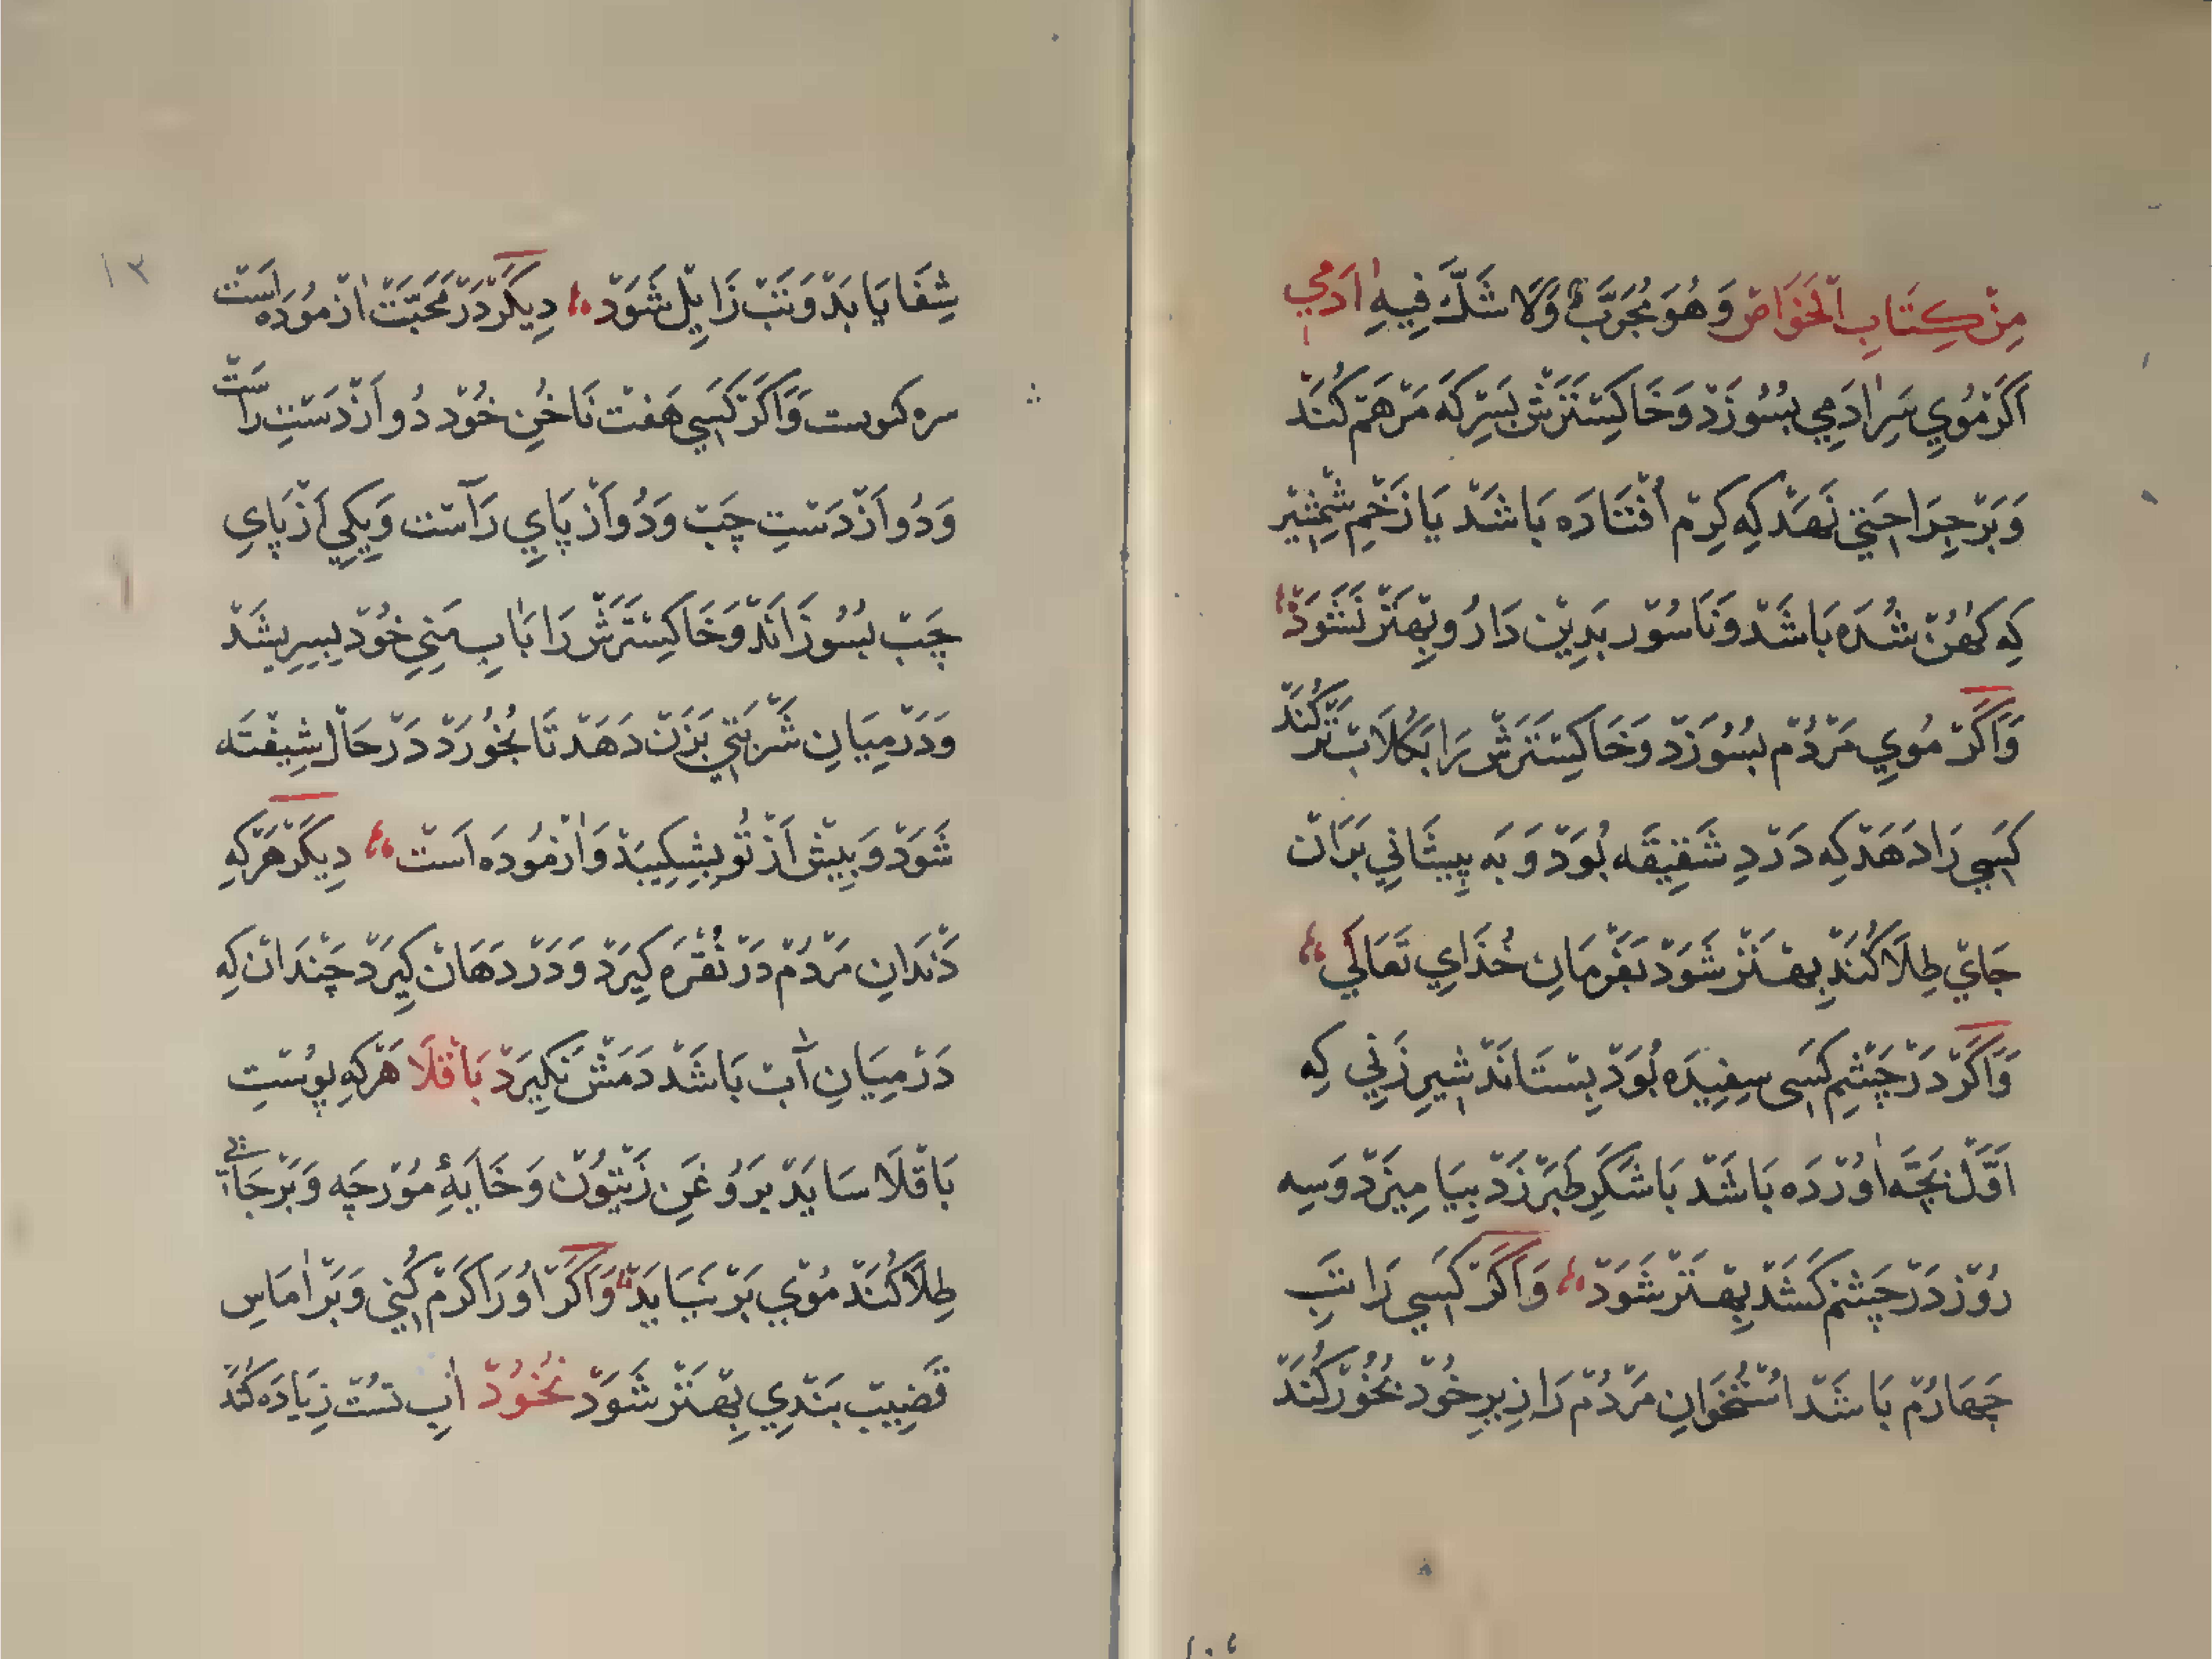 مِنْ كِتَابِ الْخَوَاصّ وَهُوَ مُجَرَّبٌ وَلَا شَكَّ فِيهِ اٰدَمِي
اَكَرْ مُويِ سَرِ اٰدَمِي بِسُوزَدْ وَخَاكِسْتَرَشْ بَسِرْكَه مَرْهَمْ كُنَدْ
وَبَرْ جِرَاحَتِي نَهَدْ كِه كِرِمْ اُفْتَادَه بَاشَدْ يَا زَخْمِ شَمْشِيرْ
كِه كُهُنْ شُدَه بَاشَدْ وَنَاسُورْ بَدِينْ دَارُو بِهْتَرْ شَوَدْ
وَاَكَرْ مُويِ مَرْدُمْ بِسُوزَدْ وَخَاكِسْتَرَشْ رَا بَكُلَابْ تَرْ كُنَدْ
كَسِي رَا دَهَدْ كِه دَرْدِ شَقِيقَه بُوَدْ وَبَه پِيشَانِي بَرَانْ
جَايْ طِلَا كُنَدْ بِهْتَرْ شَوَدْ بَفَرْمَانِ خُذَايِ تَعَالَي
وَاَكَرْ دَرْ چَشْمِ كَسَى سِفِيدَه بُوَدْ بِسْتَانَدْ شِيرِ زَنِي كِه
اَوَّلْ بَچَّه اٰوُرْدَه بَاشَدْ بَا شَكَرِ طَبَرْزَدْ بِيَامِيزَدْ وَسِه
رُوْزْ دَرْ چَشْمْ كَشَدْ بِهْتَرْ شَوَدْ وَاَكَرْ كَسِي رَا تَبِ
چَهَارُمْ بَاشَدْ اسْتُخْوَانِ مَرْدُمْ رَا زِيرِ خُودْ بُخُورْ كُنَدْ
شِفَا يَابَدْ وَتَبْ زَايِلْ شَوَدْ دِيكَرْ دَرْ مَحَبَّتْ اٰزْمُودَه اَسْت
سره كوست وَاَكَرْ كَسِي هَفْتْ نَاخُنِ خُوْد دُو اَزْ دَسْتِ رَاسْتْ
وَدُو اَزْ دَسْتِ چَبْ وَدُو اَزْ پَايِ رَاسْت وَيِكِي اَزْ پَايِ
چَبْ بِسُوزَانَدْ وَخَاكِسْتَرَشْ رَا بَاٰبِ مَنِيِ خُوْد بِسِرِيشَدْ
وَدَرْ مِيَانِ شَرْبَتِي بَزَنْ دَهَدْ تَا بُخُورَدْ دَرْ حَالْ شِيفْتَه
شَوَدْ وَبِيشْ اَزْ تُو بِشِكِيبَدْ وَاٰزْمُودَه اَسْتْ دِيكَرْ هَرْكِه
دَنْدَانِ مَرْدُمْ دَرْ نُقْرَه كِيرَدْ وَدَرْ دَهَانْ كِيرَدْ چَنْدَانْ كِه
دَرْ مِيَانِ آبْ بَاشَدْ دَمَشْ نَكِيرَدْ بَاقْلَا هَرْكِه پوُسْتِ
بَاقْلَا سَايَدْ بَرَوُغَنِ زَيْتُونْ وَخَايَهٔ مُوْرچَه وَبَرْ جَائي
طِلَا كُنَدْ مُوْيِ بَرْ نَيَايَدْ وَاَكَرْ اوُرَا كَرَمْ كُنِي وَبَرْ اٰمَاسِ
قَضِيبْ بَنْدِي بِهْتَرْ شَوَدْ نُخُوْدْ اٰبِ زِيَادَه كُنَدْ
١٣